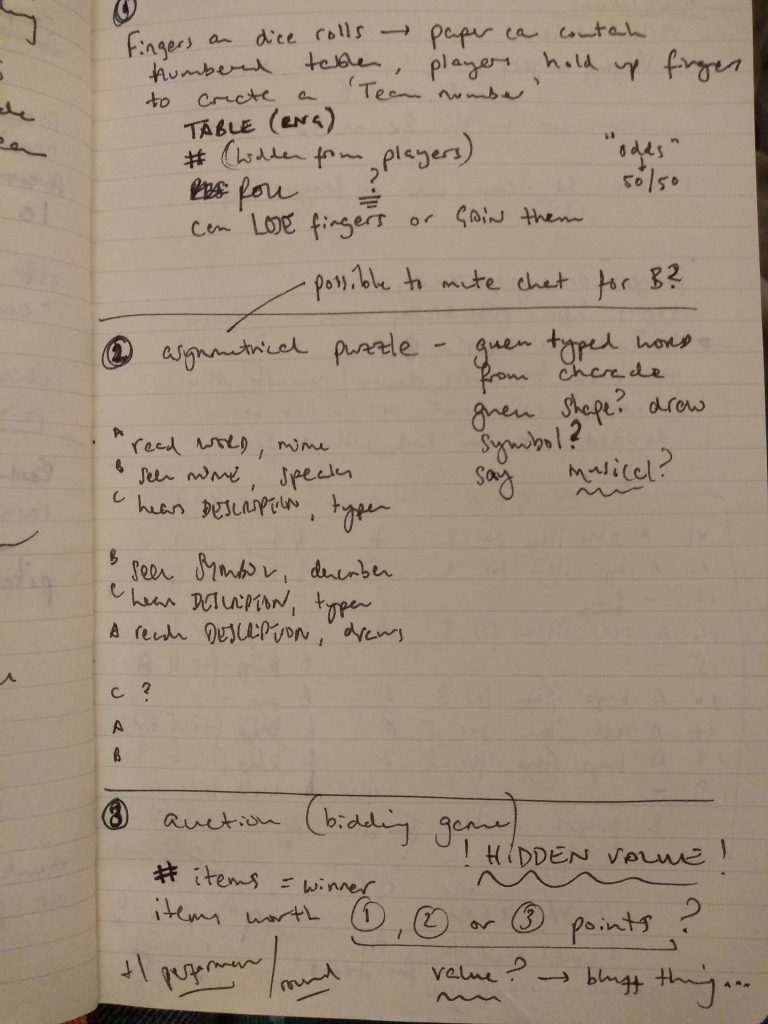 ①
Fingers as dice rolls → paper can contain
numbered tables, players hold up fingers
to create a 'Team number'
TABLE (ENG)
# (hidden from players) "odds"
ROLL ? 50/50
can LOSE fingers or GAIN them
possible to mute chat for B?
② asymmetrical puzzle - given typed word
from charade
given shape? draw
A read WORD, mime symbol?
B sees MIME, speaks say musical?
C hears DESCRIPTION, types
B sees SYMBOL, describes
C hears DESCRIPTION, types
A reads DESCRIPTION, draws
C ?
A
B
③ auction (bidding game)
! HIDDEN VALUE !
# items = winner
items worth ①, ② or ③ points?
+1 performer/round value? → bluff thing...